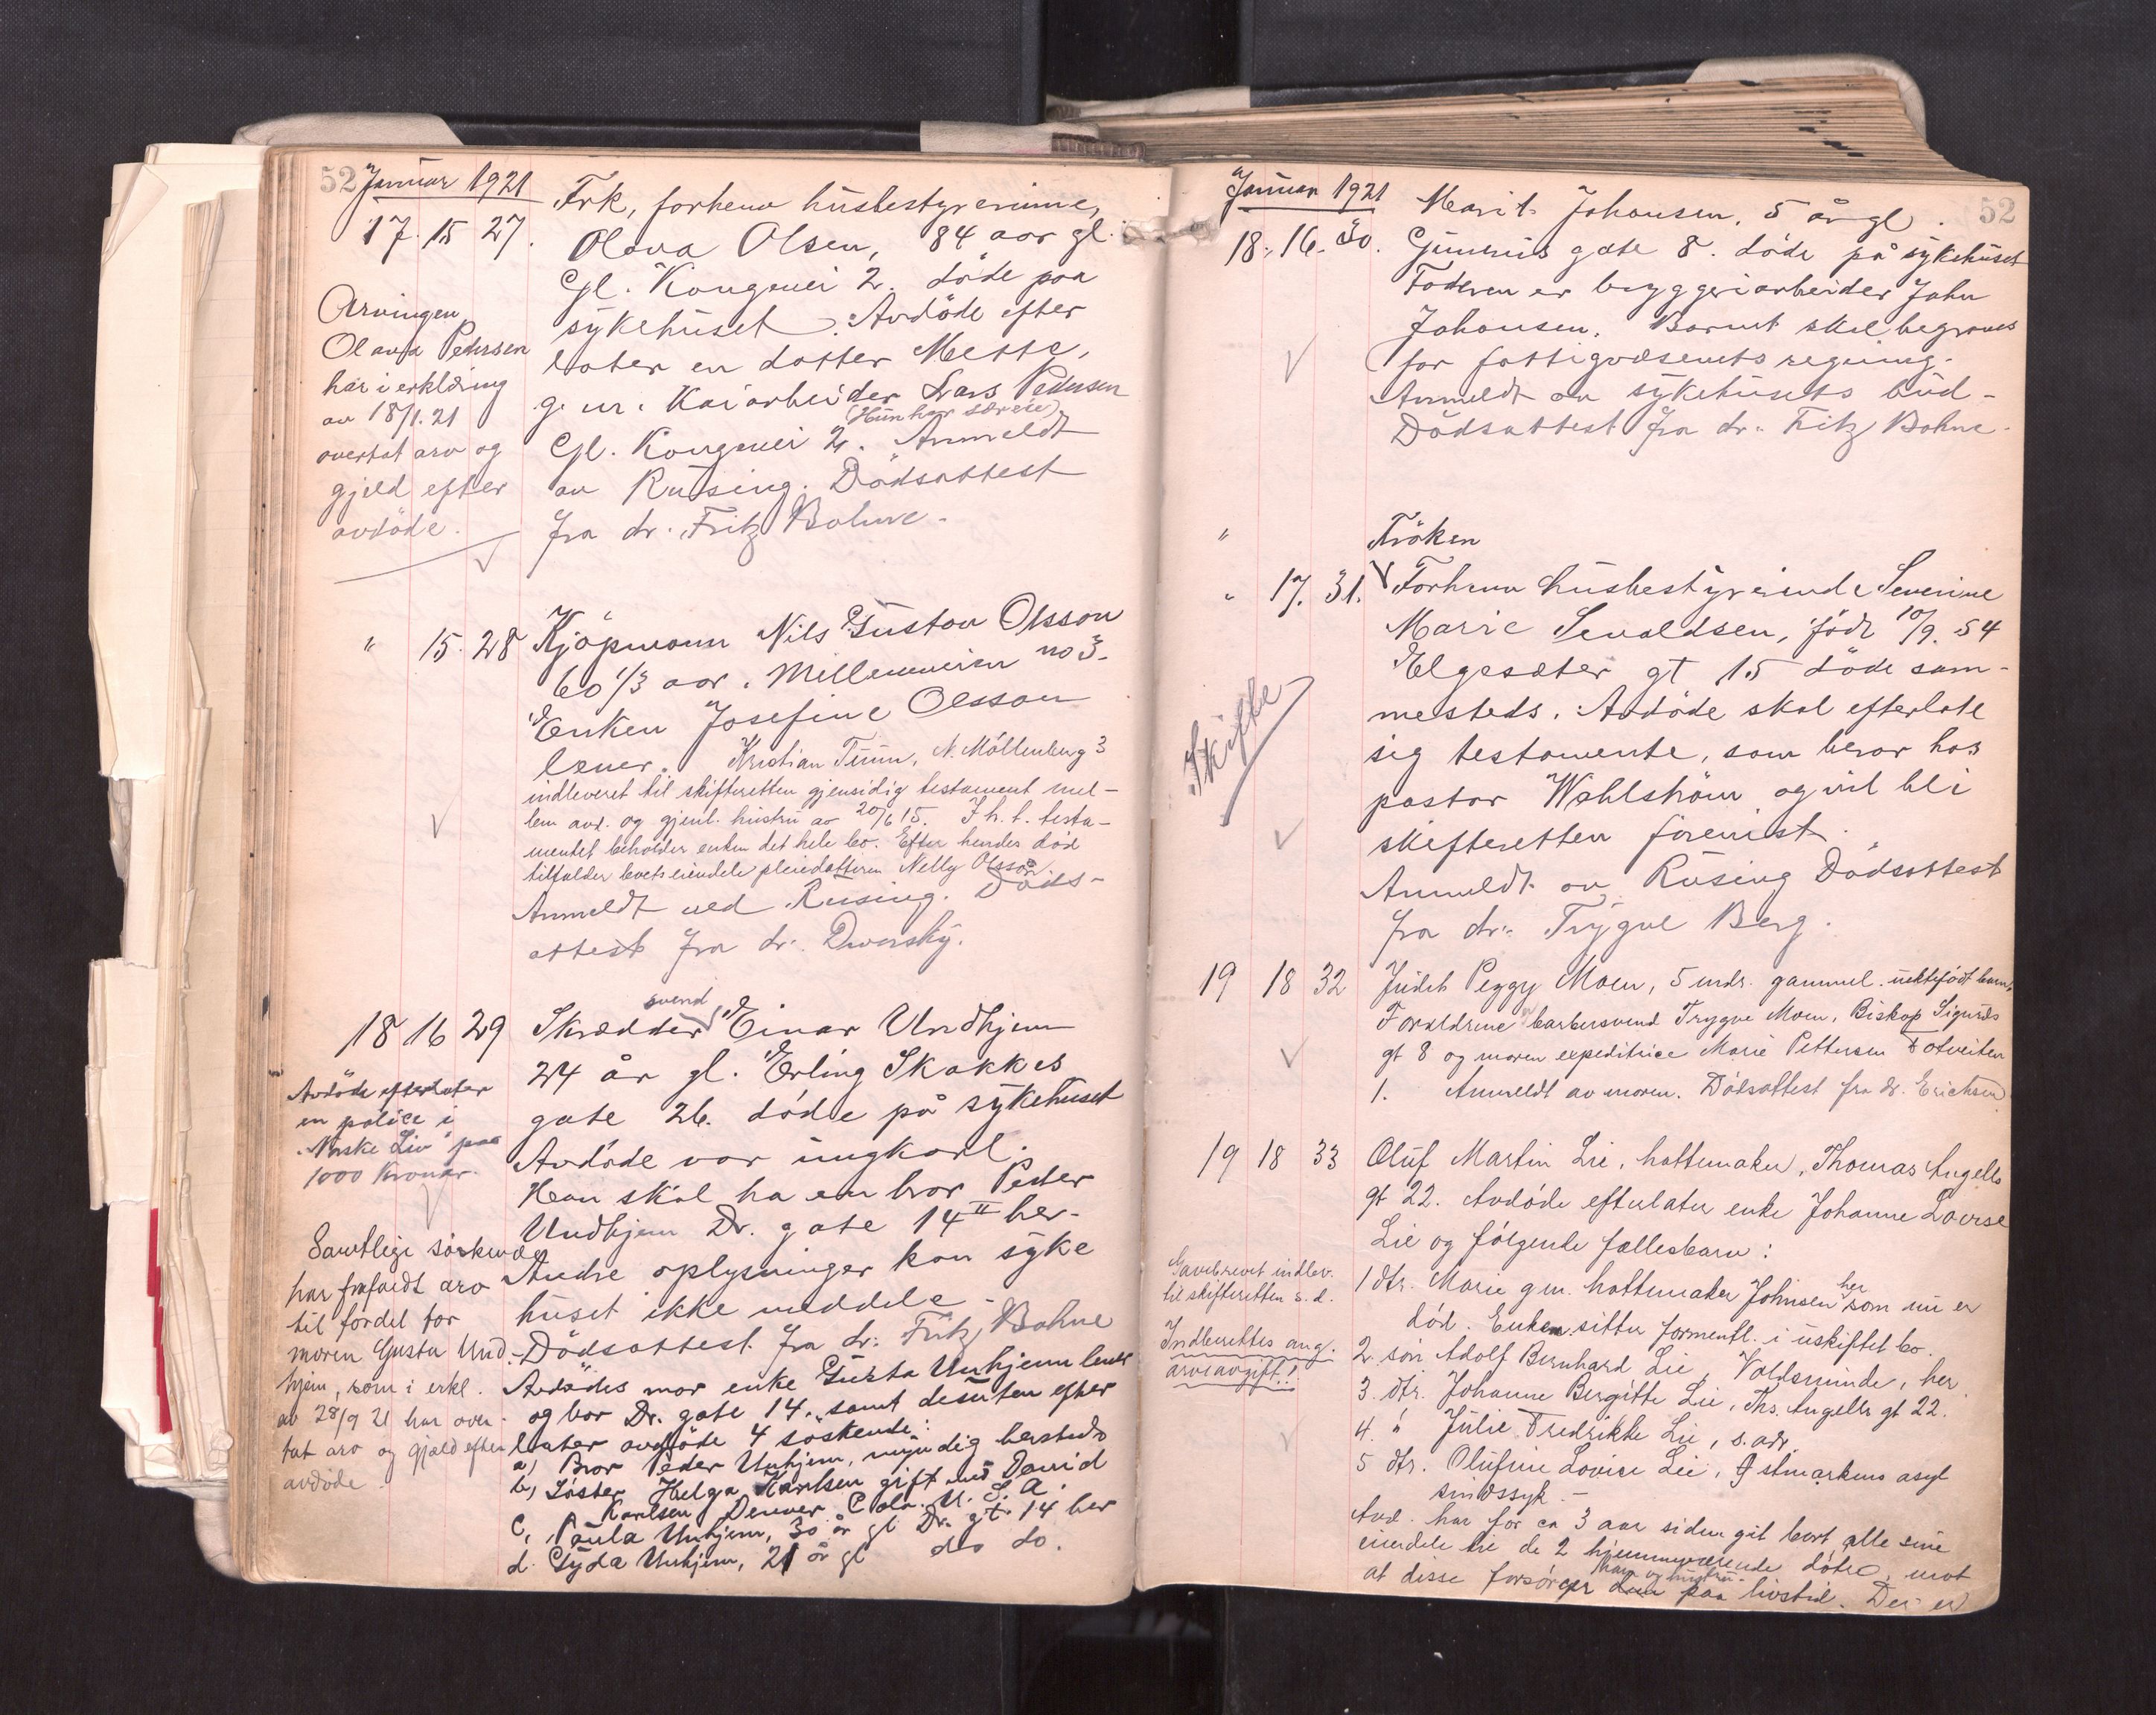 52
Januar 1921
17. 15 27.
Frk, forhenv husbestyrerinne,
Olava Olsen, 84 aar gl.
Gl. Kongevei 2. døde paa
sykehuset. Avdöde efter
later en datter Mette,
g. m. Kaiarbeider Lars Pedersen
(Hun har særeie)
Gl. Kongevei 2. Anmeldt
av Rusing. Dödsattest
fra dr. Fritz Bohne.
Arvingen
Olava Pedersen
har i erklæring
av 18/1.21
overtat arv og
gjeld efter
avdöde.
" 15. 28
Kjöpmann Nils Gustav Olsson
60 1/3 aar. Møllenveien no 3.
Enken Josefine Olsson
lever. Kristian Timm, N. Möllenberg 3
indleveret til skifteretten gjensidig testament mel-
lem avd. og gjenl. hustru av 20/6 15. I h. t. testa-
mentet beholder enken det hele bo. Efter hendes död
tilfalder boets eiendele pleiedatteren Nelly Olsson.
Anmeldt ved Rusing. Döds-
attest fra dr. Dworsky.
18 16 29
svend
Skrædder Einar Undhjem
24 år gl. Erling Skakkes
gate 26. döde på sykehuset
Avdöde var ungkarl.
Han skal ha en bror Peder
Undhjem Dr. gate 14 II her.
Andre oplysninger kan syke
huset ikke meddele.
Dödsattest fra dr. Fritz Bohne
Avdödes mor enke Gusta Unhjem lever
og bor Dr. gate 14. samt desuten efter
later avdöde 4 søskende:
a) Bror Peder Unhjem, myndig hersteds
b) Söster Helga Karlsen gift med David
Karlsen Denver Colo. U. S. A.
c, " Paula Unhjem, 30 år gl Dr. gt. 14 her
d. Gyda Unhjem, 21 år gl do do.
Avdöde efterlater
en police i
"Norske Liv" paa
1000 Kroner.
Samtlige söskende
har frafaldt arv
til fordel for
moren Gusta Und-
hjem, som i erkl.
av 28/9 21 har over-
tat arv og gjæld efter
avdöde.
Januar 1921
52
18. 16. 30.
Marit Johansen, 5 år gl.
Gunnus gate 8. döde på sykehuset
Faderen er bryggeriarbeider John
Johansen. Barnet skal begraves
for fattigvæsenets regning.
Anmeldt av sykehusets bud-
Dödsattest fra dr. Fritz Bohne.
"
Fröken
" 17. 31.
Forhenv husbestyrerinde Severine
Marie Sevaldsen, född 10/9. 54
Elgesæter gt 15 döde sam-
mesteds. Avdöde skal efterlate
sig testamente, som beror hos
pastor Wahlström og vil bli
skifteretten forevist.
Anmeldt av Rusing Dödsattest
fra dr. Trygve Berg.
Skifte
19 18 32
Judit Peggy Moen, 5 mdr. gammel. uektefödt barn.
Forældrene barbersvend Trygve Moen, Biskop Sigurds
gt 8 og moren expeditrice Marie Pettersen Totveiten
1. Anmeldt av moren. Dödsattest fra dr. Erichsen
19 18 33
Oluf Martin Lie, hattemaker, Thomas Angells
gt 22. Avdöde efterlater enke Johanne Lovise
Lie og fölgende fællesbarn:
1 dtr. Marie g m. hattemaker Johnsen her som nu er
död. Enken sitter formentl. i uskiftet bo.
2. sön Adolf Bernhard Lie, Voldsminde, her
3. dtr. Johanne Bergitte Lie, Ths. Angells gt 22.
4. " Julie Fredrikke Lie, s. adr.
5 dtr. Olufine Lovise Lie, Östmarkens asyl
sindssyk.-
Avd. har for ca 3 aar siden git bort alle sine
eiendele til de 2 hjemmeværende dötre, mot
ham og hustru
at disse forsörger dem paa livstid. Der er
Gavebrevet indlev.
til skifteretten s. d.
Indberettes ang.
arveavgift!